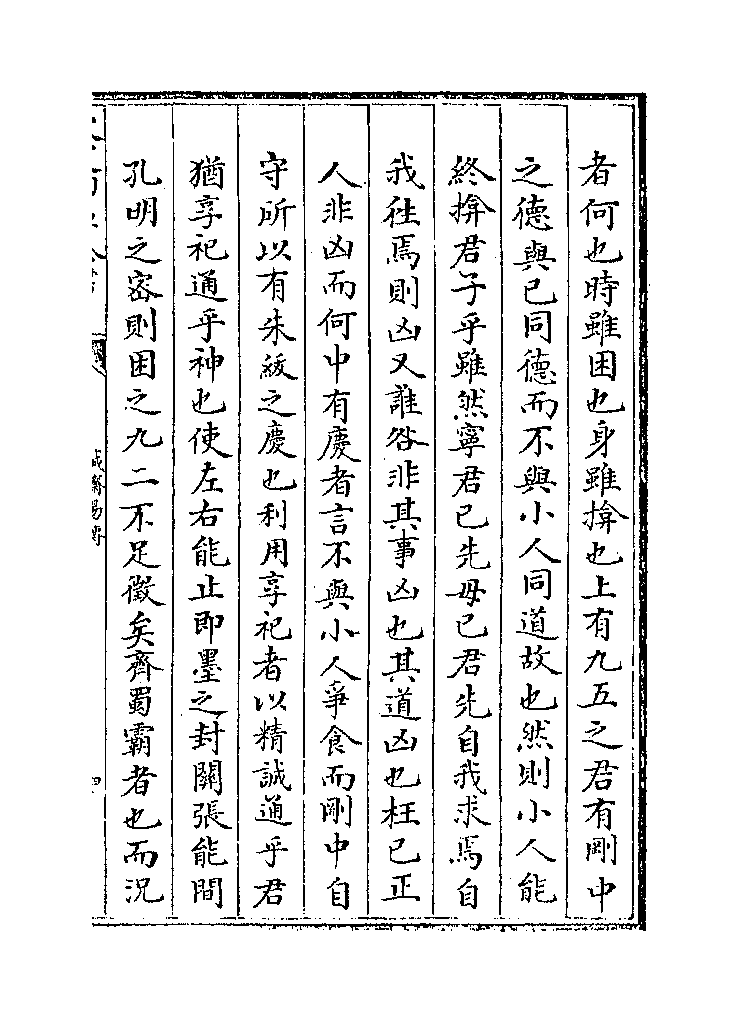 者何也時雖困也身雖揜也上有九五之君有剛中
之德與已同德而不與小人同道故也然則小人能
終揜君子乎雖然寧君已先毋已君先自我求焉自
我徃焉則凶又誰咎非其事凶也其道凶也枉已正
人非凶而何中有慶者言不與小人爭食而剛中自
守所以有朱紱之慶也利用享祀者以精誠通乎君
猶享祀通乎神也使左右能止即墨之封關張能間
孔明之宻則困之九二不足徵矣齊蜀霸者也而况
誠齋易傳
四